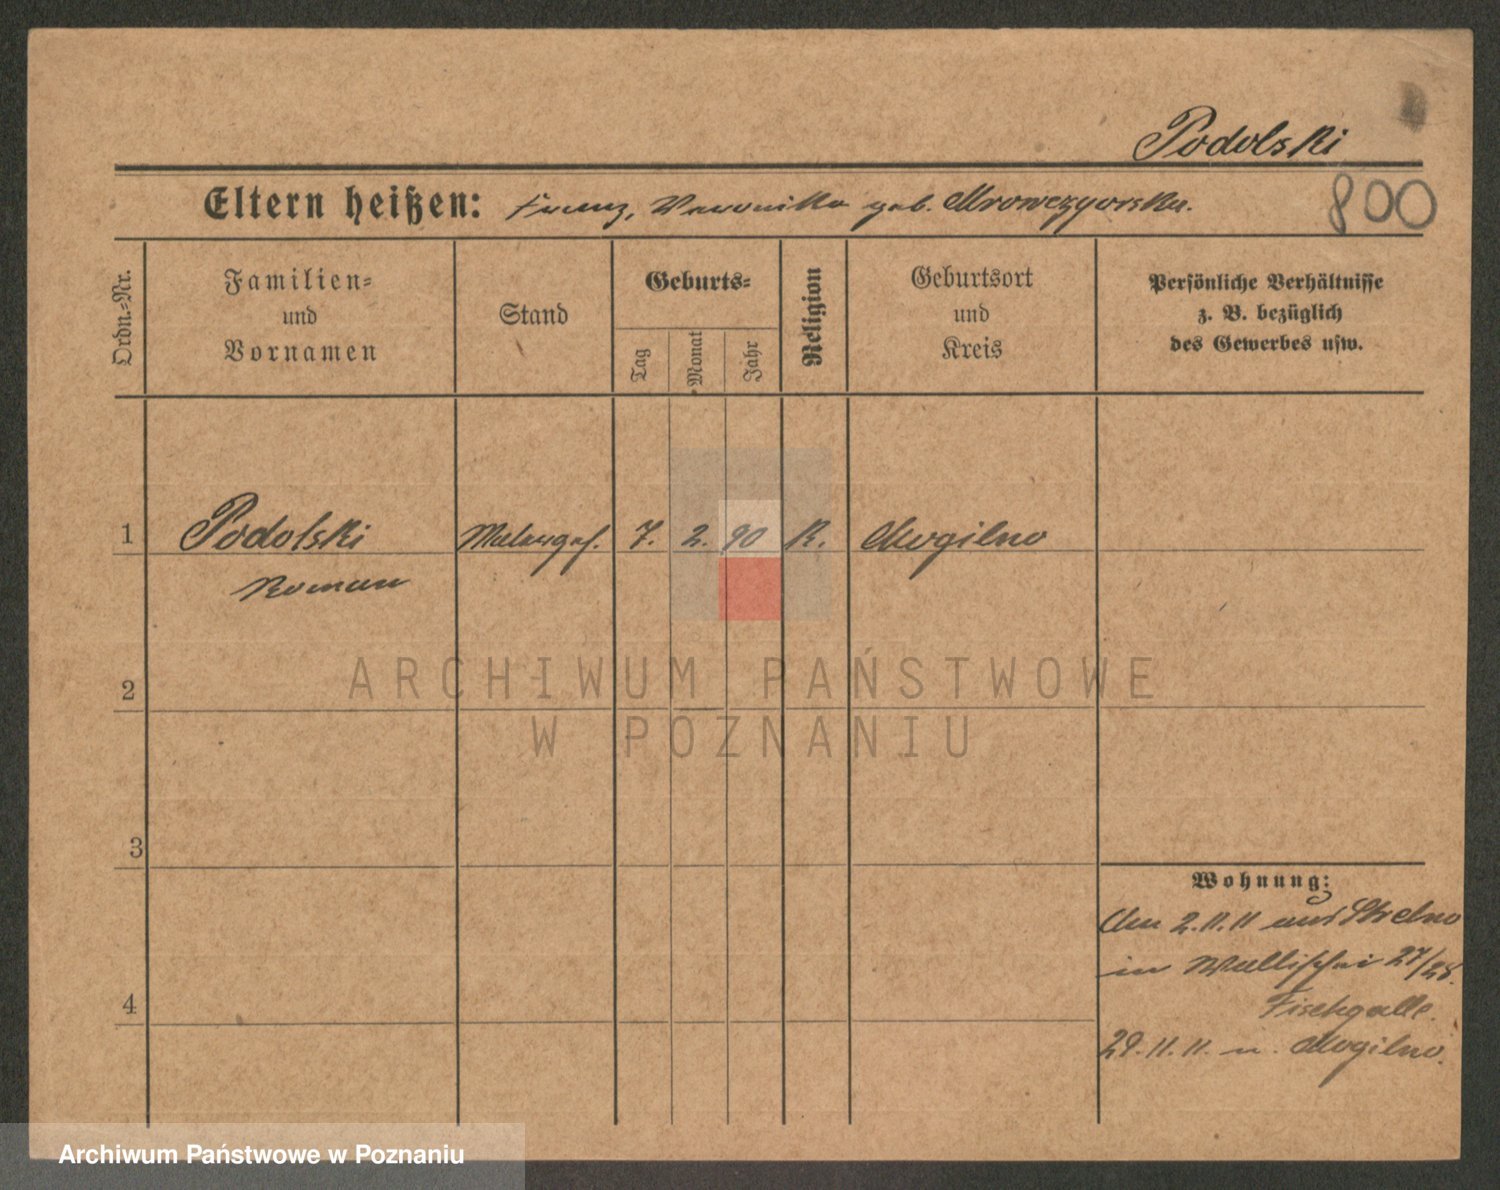 Podolski
Eltern heißen: Franz, Veronika geb. Mrowczynska.
800
Ordn.-Nr.
Familien-
und
Vornamen
Stand
Geburts-
Tag
Monat
Jahr
Religion
Geburtsort
und
Kreis
Persönliche Verhältnisse
z. B. bezüglich
des Gewerbes usw.
1 Podolski Malergeh. 7. 2. 90 K. Mogilno
Roman
2
3
4
Wohnung:
Am 2.11.11 aus Strelno
in Wallischei 27/28.
29.11.11. n. Mogilno.
ARCHIWUM PAŃSTWOWE
W POZNANIU
Archiwum Państwowe w Poznaniu